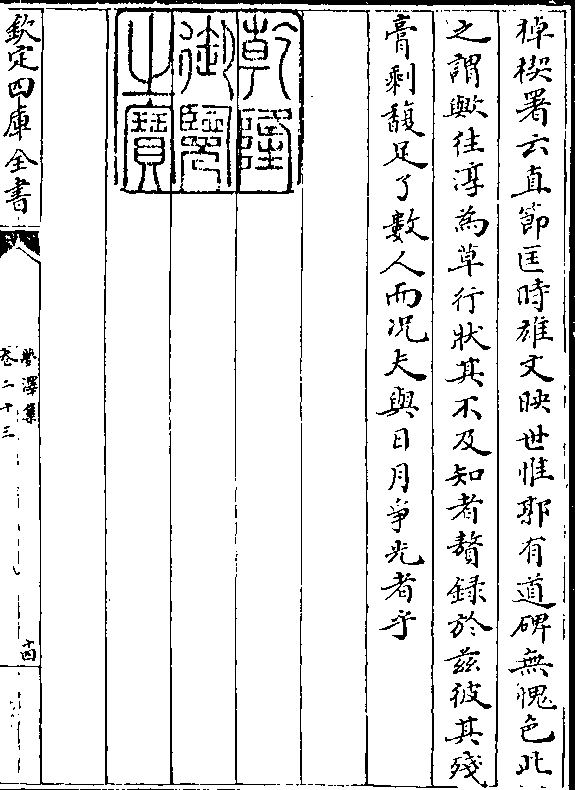 棹楔署云直節匡時雄文映世惟郭有道碑無愧色此
之謂歟往淳為草行狀其不及知者贅録於茲彼其殘
膏剩馥足了數人而况夫與日月爭光者乎
乾隆御覽之寶
欽定四庫全書
夢澤集
卷二十三
十四